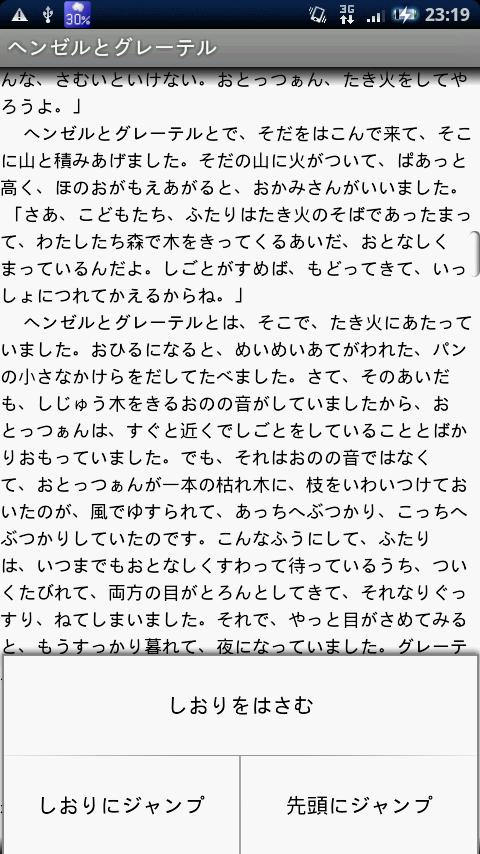 30%
3G
23:19
ヘンゼルとグレーテル
んな、さむいといけない。おとっつぁん、たき火をしてや
ろうよ。」
ヘンゼルとグレーテルとで、そだをはこんで来て、そこ
に山と積みあげました。そだの山に火がついて、ぱあっと
高く、ほのおがもえあがると、おかみさんがいいました。
「さあ、こどもたち、ふたりはたき火のそばであったまっ
て、わたしたち森で木をきってくるあいだ、おとなしく
まっているんだよ。しごとがすめば、もどってきて、いっ
しょにつれてかえるからね。」
ヘンゼルとグレーテルとは、そこで、たき火にあたって
いました。おひるになると、めいめいあてがわれた、パン
の小さなかけらをだしてたべました。さて、そのあいだ
も、しじゅう木をきるおのの音がしていましたから、お
とっつぁんは、すぐと近くでしごとをしていることとばか
りおもっていました。でも、それはおのの音ではなく
て、おとっつぁんが一本の枯れ木に、枝をいわいつけてお
いたのが、風でゆすられて、あっちへぶつかり、こっちへ
ぶつかりしていたのです。こんなふうにして、ふたり
は、いつまでもおとなしくすわって待っているうち、つい
くたびれて、両方の目がとろんとしてきて、それなりぐっ
すり、ねてしまいました。それで、やっと目がさめてみる
と、もうすっかり暮れて、夜になっていました。グレーテ
しおりをはさむ
しおりにジャンプ
先頭にジャンプ